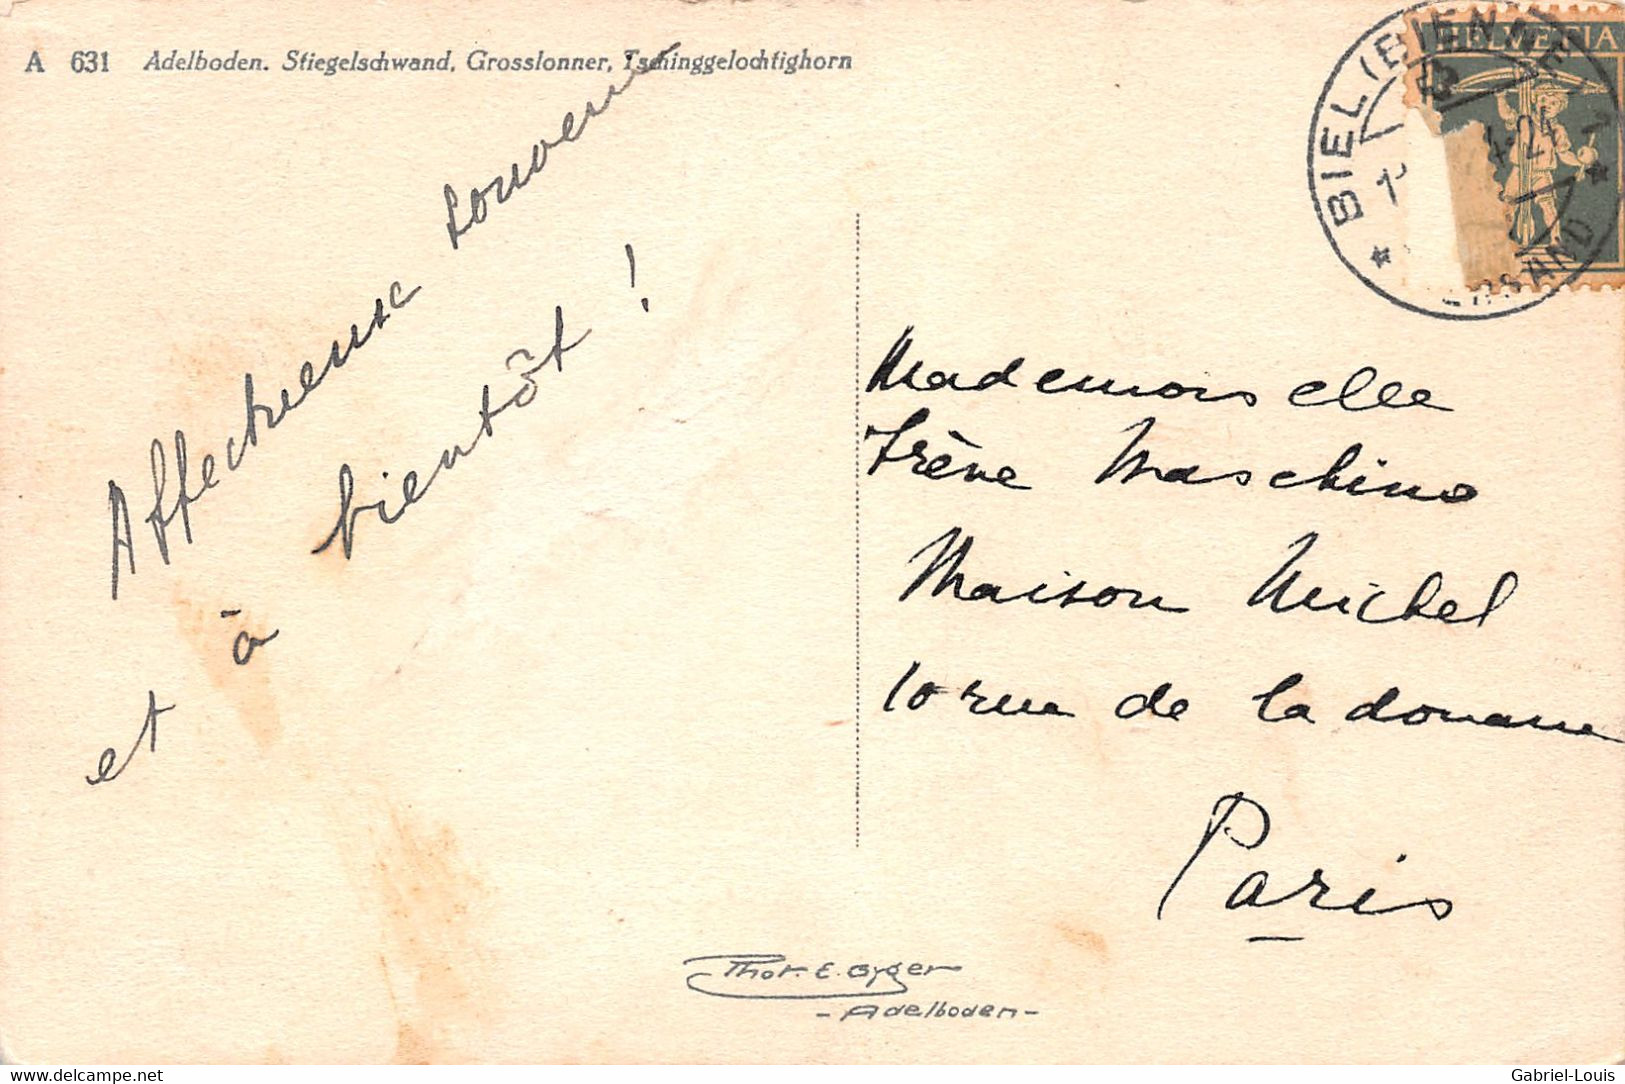 A 631 Adelboden. Stiegelschwand, Grosslonner, Tschinggelochtighorn
HELVETIA
BIEL (BIENNE) 1
Affectueux souvenir
et à bientôt !
Mademoiselle
Irène Maschino
Maison Michel
10 rue de la douane
Paris
Phot. E. Gyger
- Adelboden -
www.delcampe.net
Gabriel-Louis